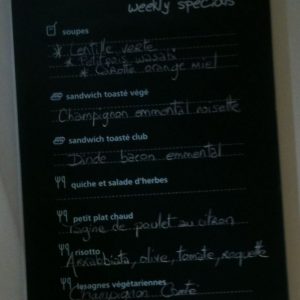 weekly specials
soupes
* Lentille verte
* Petit pois wasabi
* Carotte orange miel
sandwich toasté végé
Champignon emmental noisette
sandwich toasté club
Dinde bacon emmental
quiche et salade d'herbes
petit plat chaud
Tagine de poulet au citron
risotto
Arrabbiata, olive, tomate, roquette
lasagnes végétariennes
Champignon